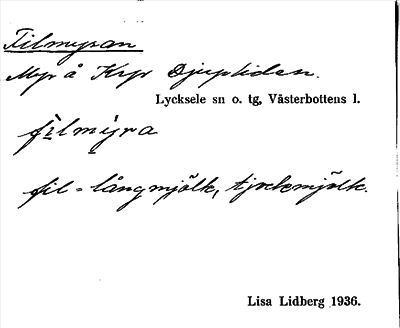 Filmyran
Myr å Krp Djuptiden.
Lycksele sn o. tg, Västerbottens l.
filmyra
fil = långmjölk, tjockmjölk.
Lisa Lidberg 1936.